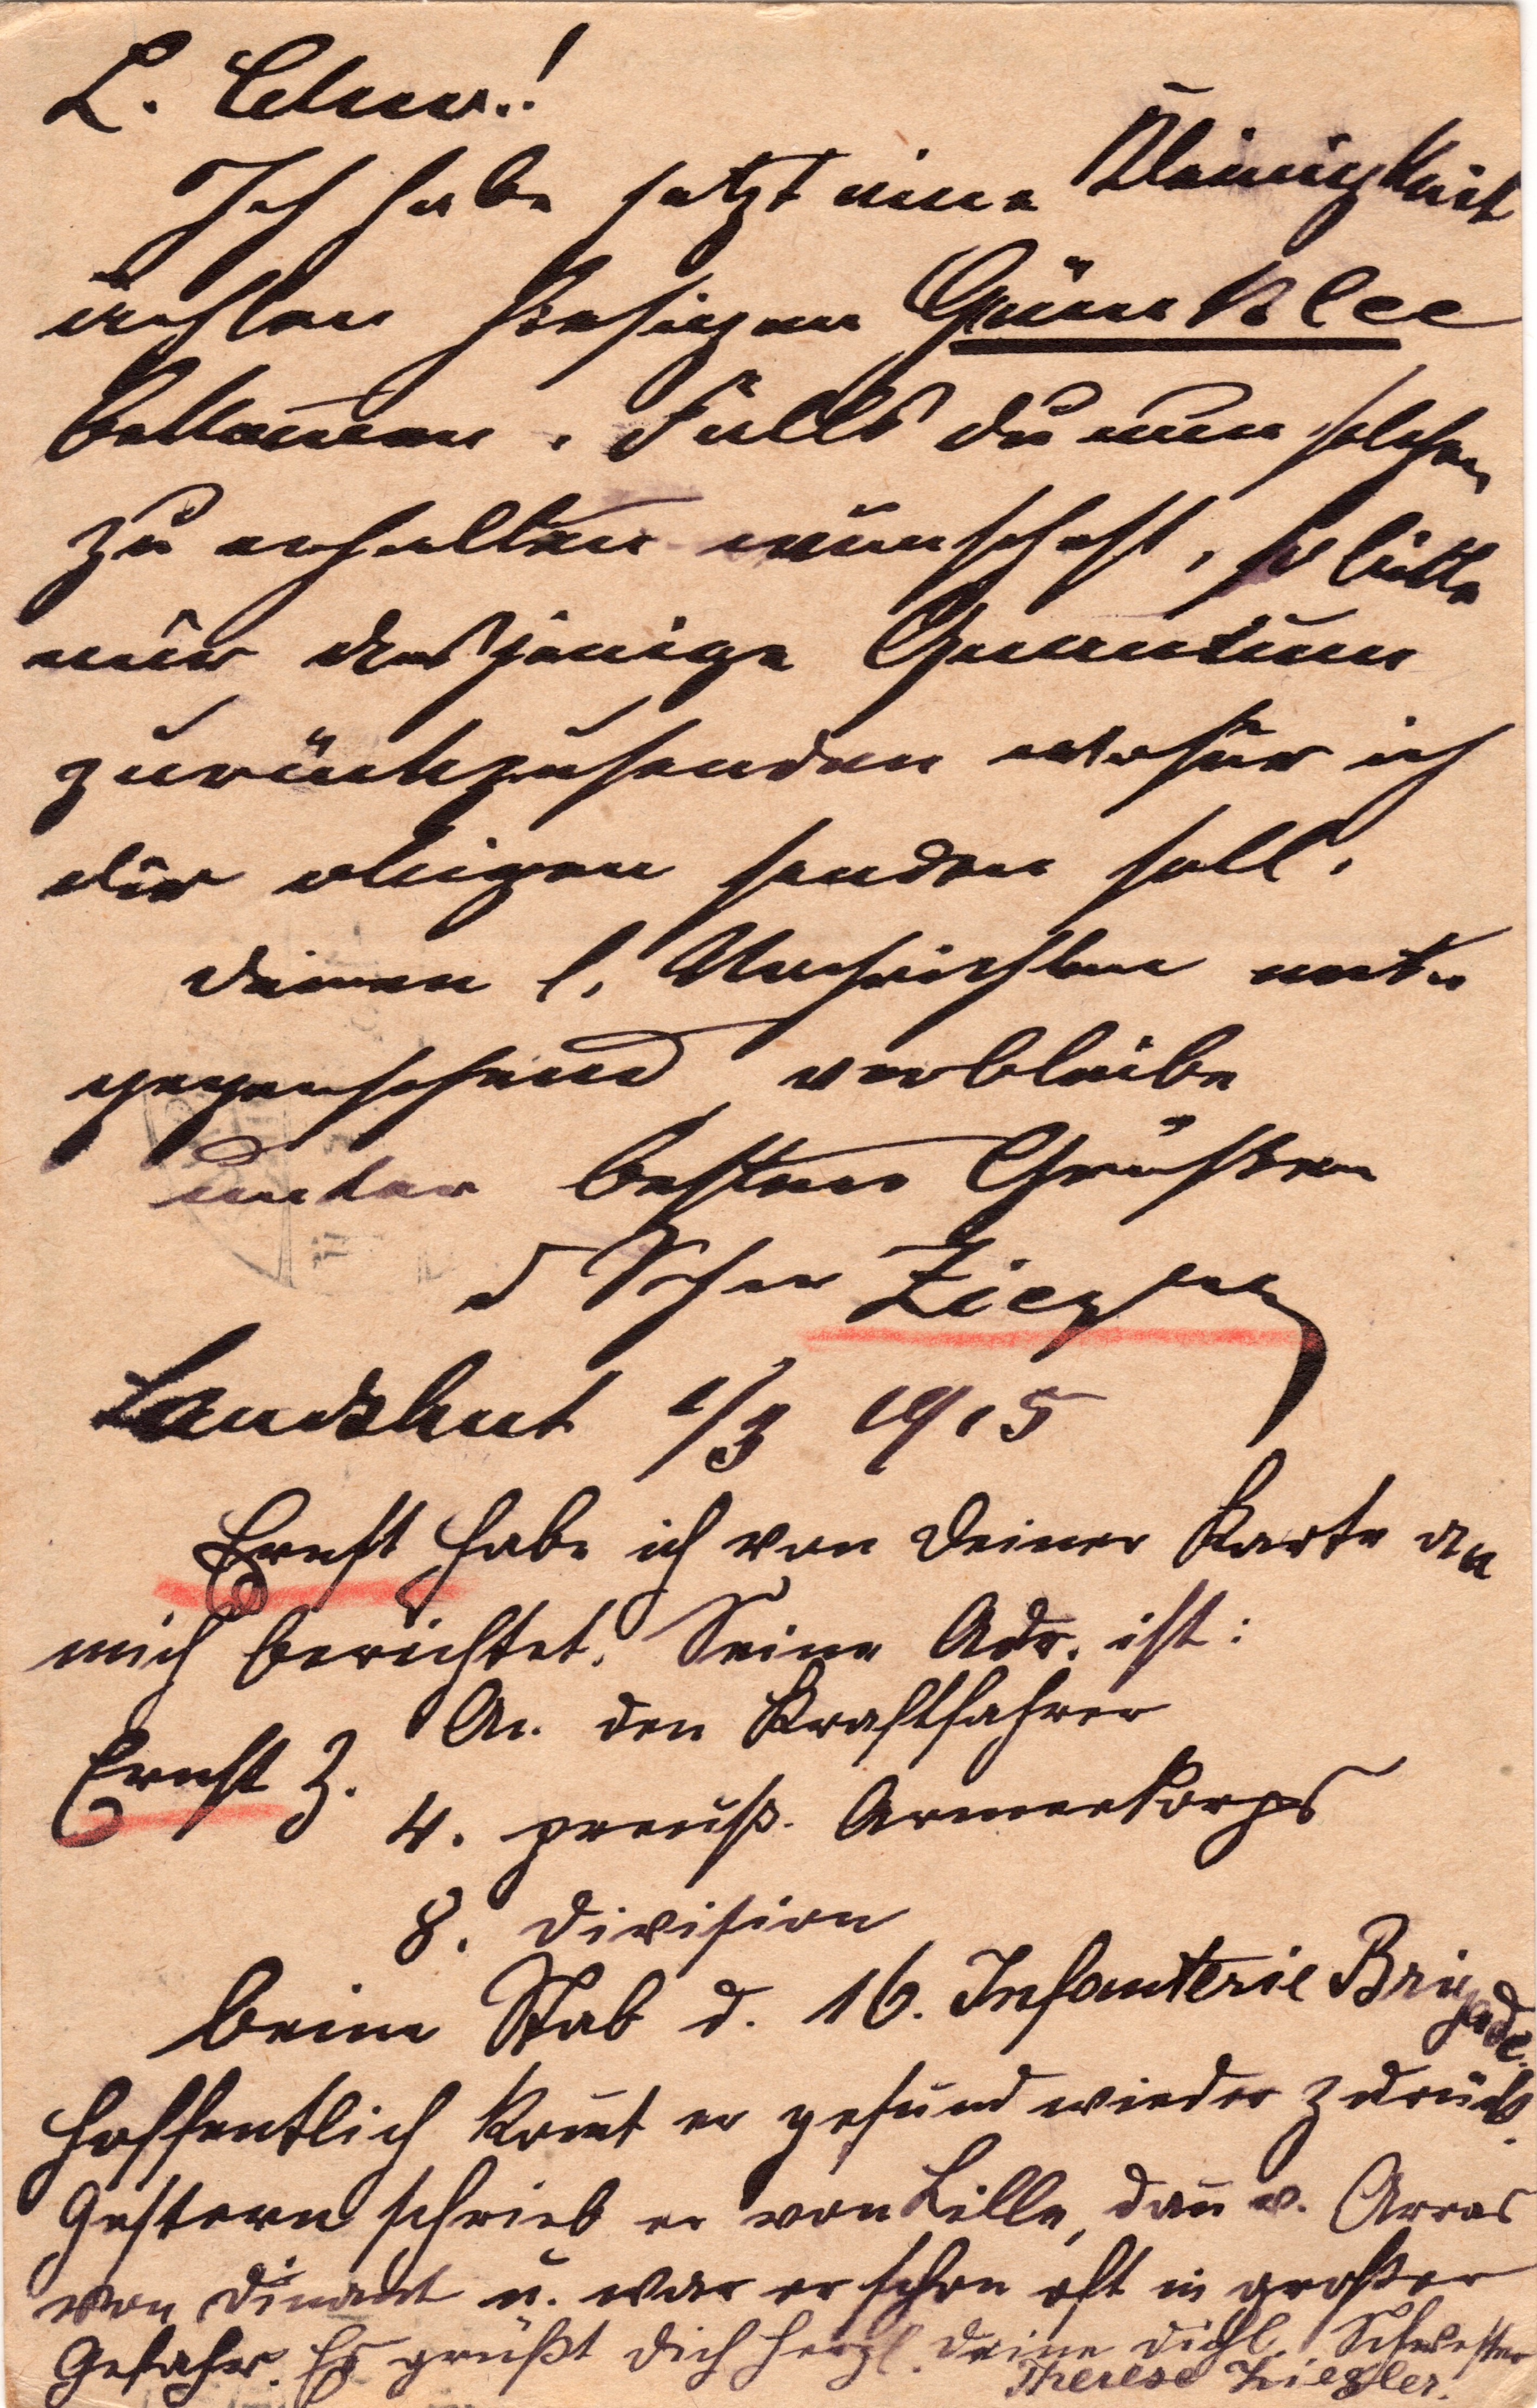 L. Schw.!
Ich habe jetzt eine Kleinigkeit
ächten hiesigen Grünklee
bekom̅en. Falls du nun solchen
zu erhalten wünschest, so bitte
mir dasjenige Quantum
zurückzusenden wofür ich
dir obigen senden soll.
Deinen l. Nachrichten ent-
gegensehend verbleibe
unter besten Grüssen
d Schw Ziegler
Landshut 1/3 1915
Ernst habe ich von Deiner Karte an
mich berichtet. Seine Adr. ist:
An den Kraftfahrer
Ernst Z.
4. preuß. Armeekorps
8. Division
beim Stab d. 16. Infanterie Brigade.
Hoffentlich kom̅t er gesund wieder zurück.
Gestern schrieb er von Lille, dan̅ v. Arras
von Dinant u. war er schon oft in großer
Gefahr. Es grüßt Dich herzl. Deine Schwester
Therese Ziegler.